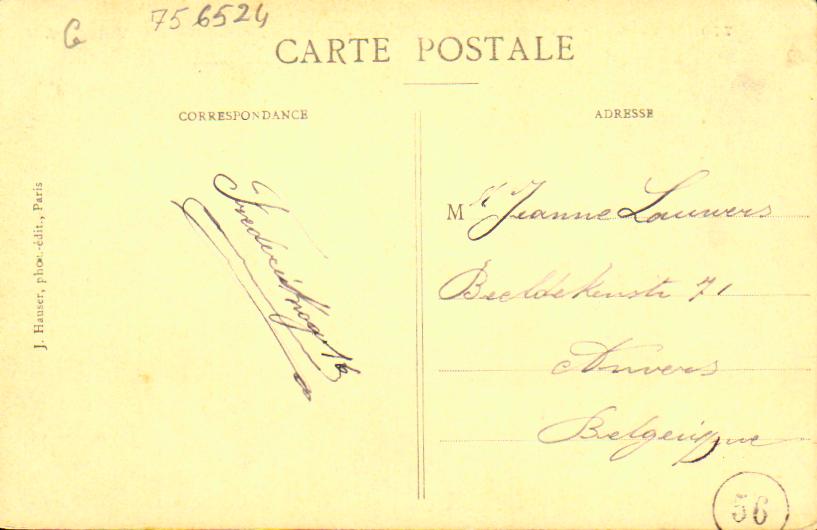 G 756524
CARTE POSTALE
CORRESPONDANCE
ADRESSE
J. Hauser, phot.-édit., Paris
Mlle Jeanne Lauwers
Beeldekenstr 71
Anvers
Belgique
56